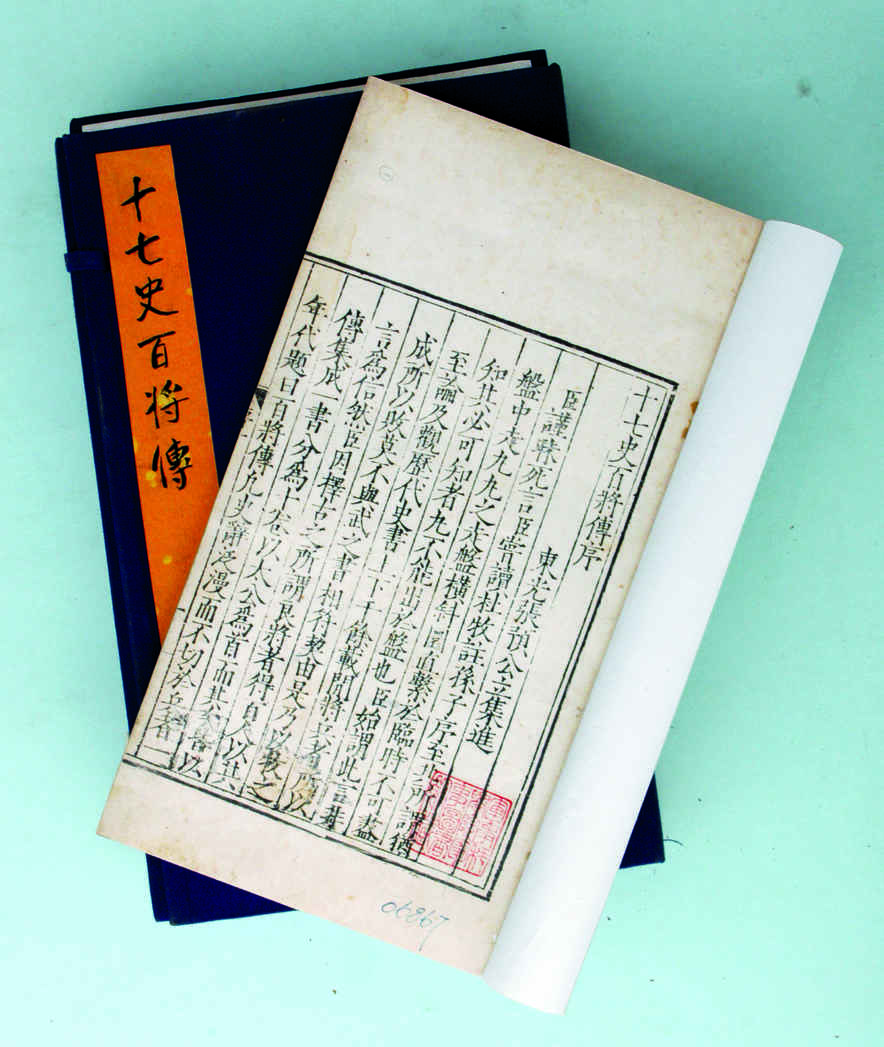 十七史百将傳
十七史百將傳序
東光張預公立集進
臣謹昧死言臣嘗謂杜牧註孫子序至其所謂猶
盤中走丸丸之走盤橫斜圓直繫於臨時不可盡
知其必可知者丸不能出於盤也臣始謂此言非
至論及觀歷代史書上下千餘載間將之所以
成所以敗莫不與武之書相符契由是乃以牧之
言爲信然臣因擇古之所謂良將者得百人以其
傳集成一書分爲十卷以太公爲首而其各以
年代題曰百將傳凡史辭泛漫而不切於兵者
06867